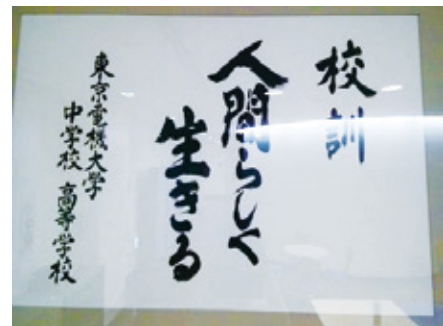 校訓
人間らしく
生きる
東京電機大学
中学校 高等学校